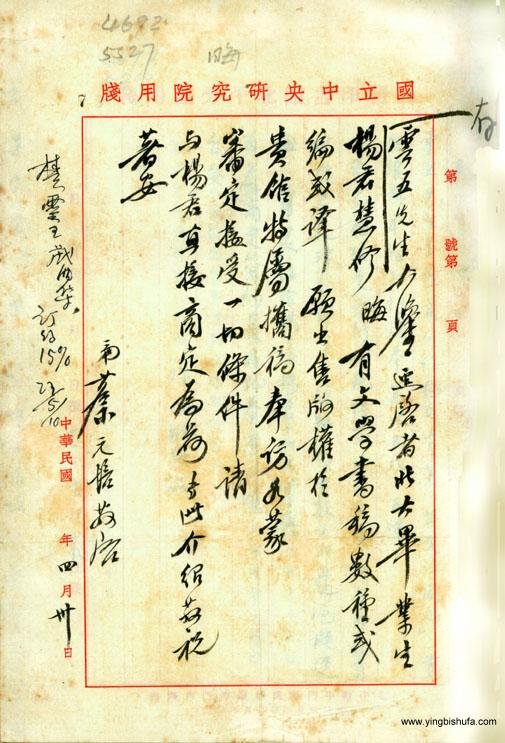 4692
5527
晦
國立中央研究院用牋
存
第 號第 頁
雲五先生大鑒逕啓者北大畢業生
楊君慧修晦有文學書稿數種或
編或譯願出售版權於
貴館特屬攜稿奉訪如蒙
審定擬受一切條件請
与楊君直接商定爲荷專此介紹並祝
著安
弟蔡元培敬啓
中華民國 年四月卅日
訂約15%
www.yingbishufa.com